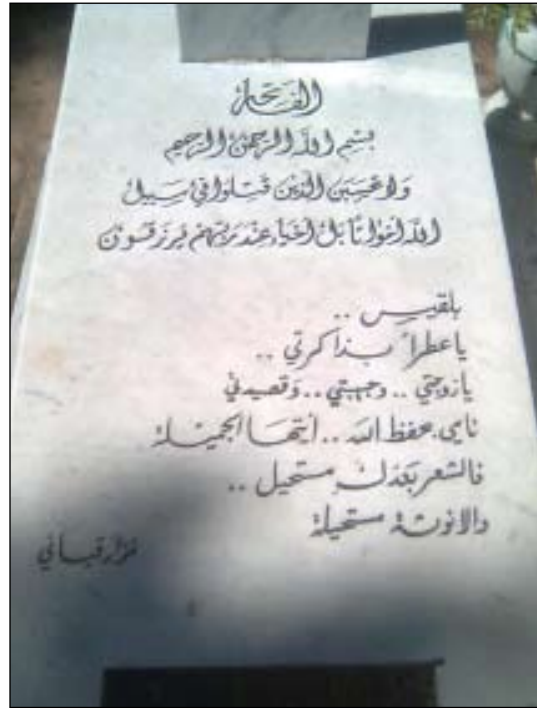 الفاتحة
بسم الله الرحمن الرحيم
ولا تحسبن الذين قتلوا في سبيل
الله أمواتا بل أحياء عند ربهم يرزقون
بلقيس ..
يا عطرا بذاكرتي ..
يا زوجتي .. وحبيبتي .. وقصيدتي
نامي بحفظ الله .. أيتها الجميلة
فالشعر بعدك مستحيل ..
والانوثة مستحيلة
نزار قباني